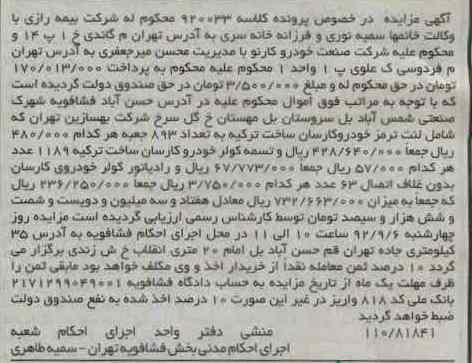 آگهی مزایده در خصوص پرونده کلاسه ۹۲۰۰۳۳ محکوم له شرکت بیمه رازی با
وکالت خانمها سمیه نوری و فرزانه خانه سری به آدرس تهران م گاندی خ ۱ پ ۱۴ و
محکوم علیه شرکت صنعت خودرو کارنو با مدیریت محسن میرجعفری به آدرس تهران م
م فردوسی ک علوی پ ۱ واحد ۱ محکوم علیه محکوم به پرداخت ۱۷۰/۰۱۳/۰۰۰
تومان در حق محکوم له و مبلغ ۳/۵۰۰/۰۰۰ تومان در حق صندوق دولت گردیده است
که با توجه به مراتب فوق اموال محکوم علیه در آدرس حسن آباد فشافویه شهرک
صنعتی شمس آباد بل سروستان بل مهستان خ گل سرخ شرکت بهسازین تهران که
شامل لنت ترمز خودروکارسان ساخت ترکیه به تعداد ۸۹۳ جعبه هر کدام ۴۸۰/۰۰۰
ریال جمعاً ۴۲۸/۶۴۰/۰۰۰ ریال و تسمه کولر خودرو کارسان ساخت ترکیه ۱۱۸۹ عدد
هر کدام ۵۷/۰۰۰ ریال جمعاً ۶۷/۷۷۳/۰۰۰ ریال و رادیاتور کولر خودروی کارسان
بدون غلاف اتصال ۶۳ عدد هر کدام ۳/۷۵۰/۰۰۰ ریال جمعاً ۲۳۶/۲۵۰/۰۰۰ ریال
که جمعاً به میزان ۷۳۲/۶۶۳/۰۰۰ ریال معادل هفتاد و سه میلیون و دویست و شصت
و شش هزار و سیصد تومان توسط کارشناس رسمی ارزیابی گردیده است مزایده روز
چهارشنبه ۹۲/۹/۶ ساعت ۱۰ الی ۱۱ در محل اجرای احکام فشافویه به آدرس ۳۵
کیلومتری جاده تهران قم حسن آباد بل امام ۲۰ متری انقلاب خ ش زندی برگزار می
گردد ۱۰ درصد ثمن معامله نقداً از خریدار اخذ و وی مکلف خواهد بود مابقی ثمن را
ظرف مهلت یک ماه از تاریخ مزایده به حساب دادگاه فشافویه ۲۱۷۱۲۹۹۰۴۹۰۰۱
بانک ملی کد ۸۱۸ واریز در غیر این صورت ۱۰ درصد اخذ شده به نفع صندوق دولت
ضبط خواهد گردید
۱۱۰/۸۱۸۴۱ منشی دفتر واحد اجرای احکام شعبه
اجرای احکام مدنی بخش فشافویه تهران - سمیه طاهری